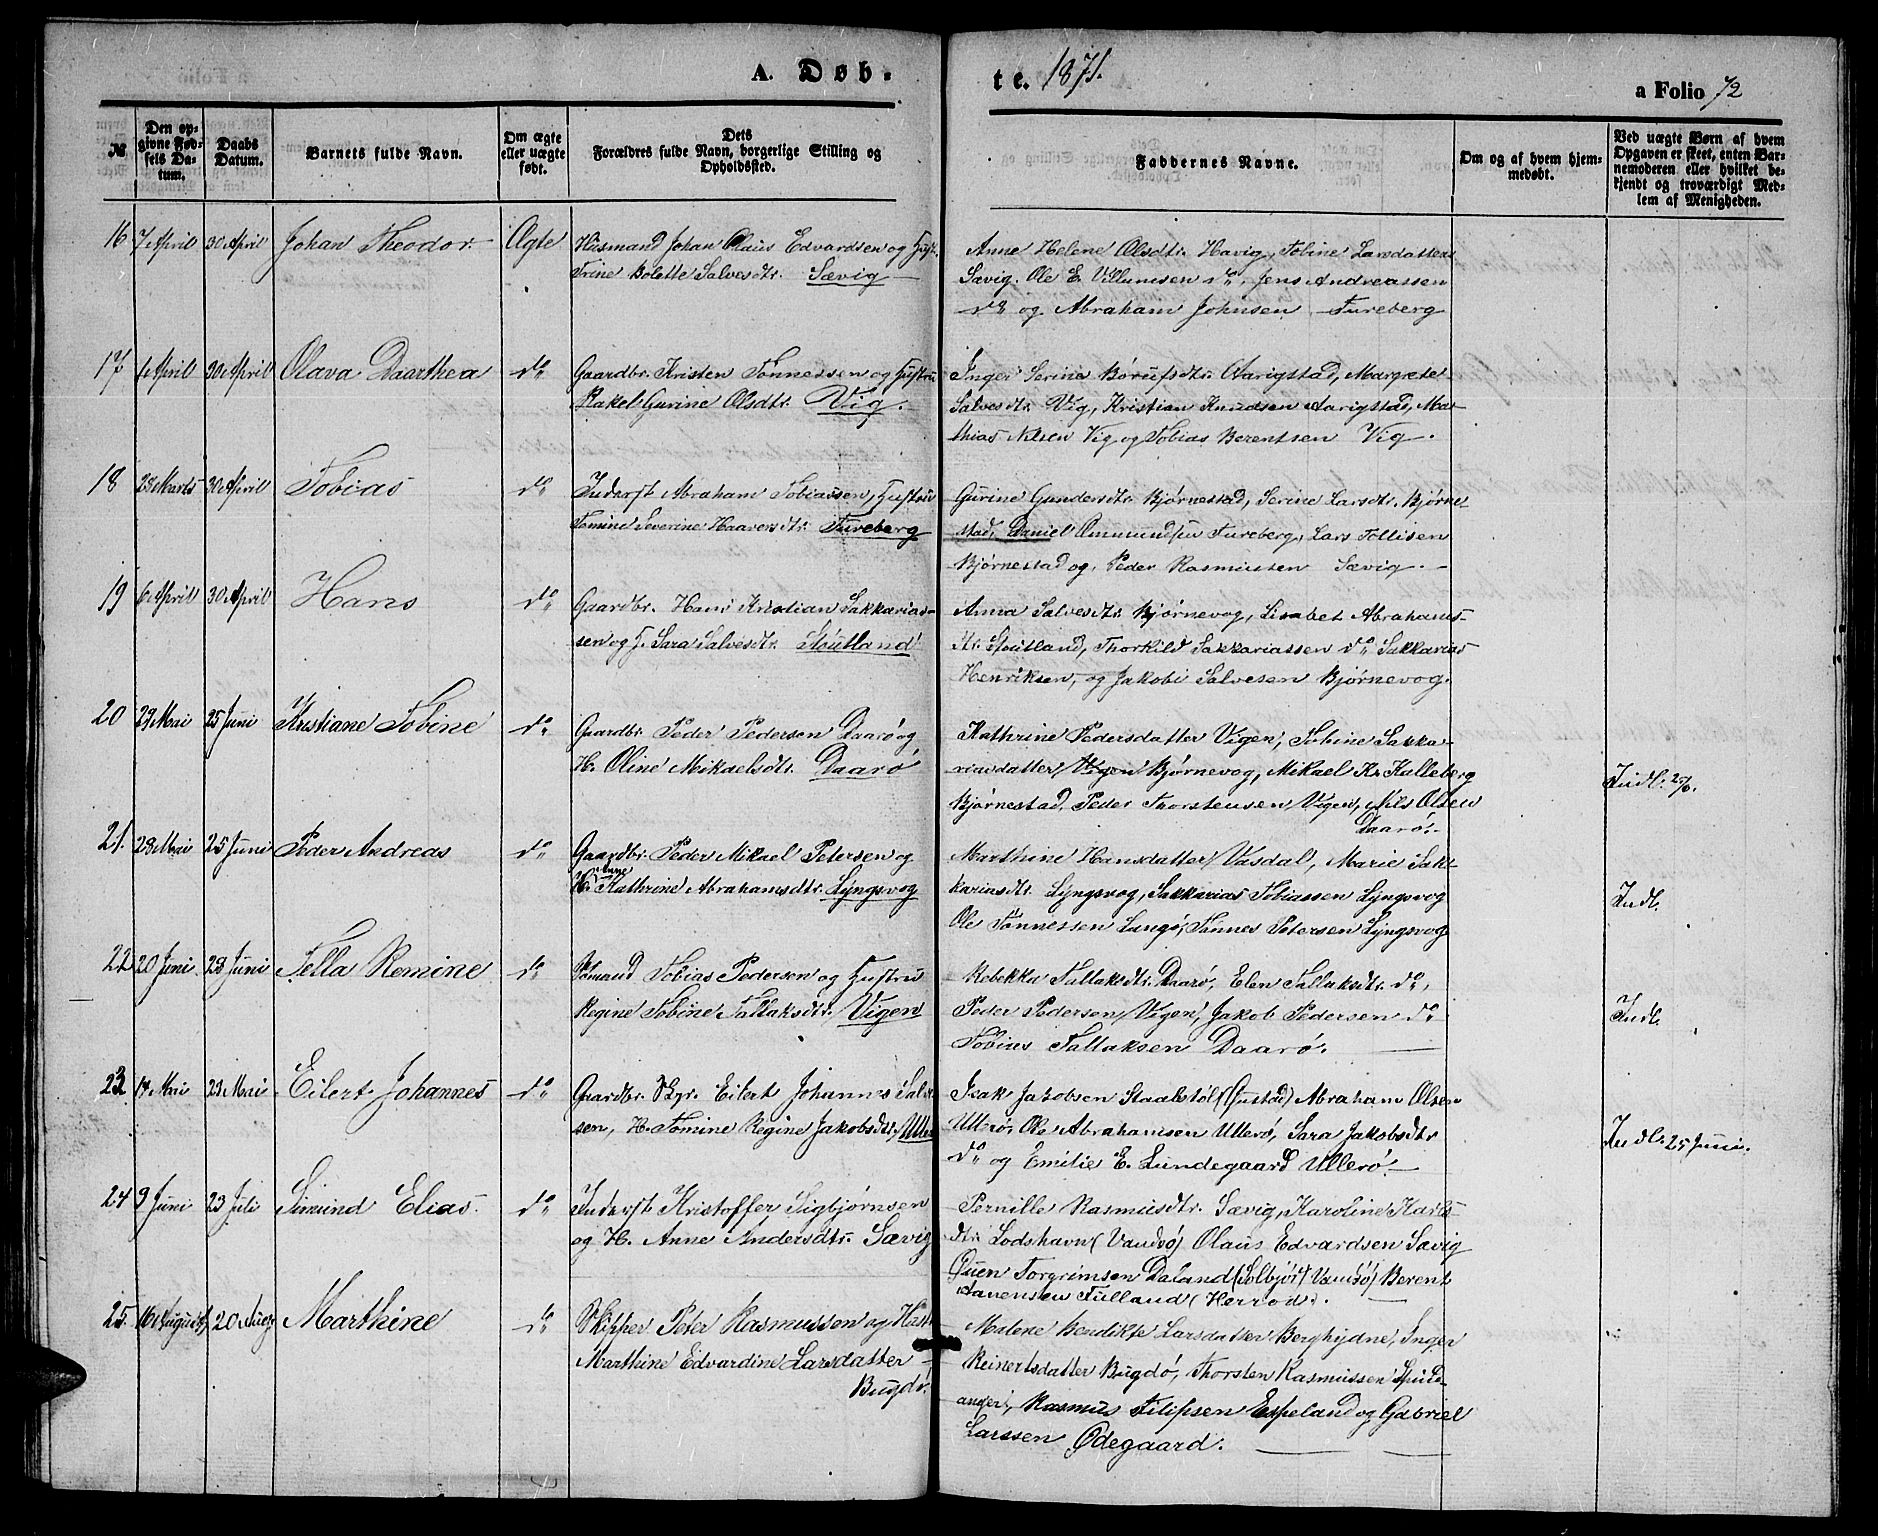 A. Døb.
te. 1871.
a Folio 72
№
Den opgivne Fødsels Datum.
Daabs Datum.
Barnets fulde Navn.
Om ægte eller uægte født.
Dets Forældres fulde Navn, borgerlige Stilling og Opholdssted.
Faddernes Navne.
Om og af hvem hjemmedøbt.
Ved uægte Børn af hvem Opgaven er skeet, enten Barnemoderen eller hvilket bekjendt og troværdigt Medlem af Menigheden.
16 7 April 30 April Johan Theodor Ægte
Husmand Johan Olaus Edvardsen og Hustr.
Trine Bolette Salvesdtr. Sævig
Anne Helene Olsdtr. Havig, Tobine Larsdatter
Sævig. Ole E. Villumsen do, Jens Andreassen
do og Abraham Johnsen Fureberg
17 1 April 30 April Olava Daarthea do
Gaardbr. Kristen Tønnessen og Hustru
Rakel Gurine Olsdtr. Vig.
Inger Serine Børufsdtr. Aarigstad, Margrete
Salvesdtr. Vig, Kristian Knudsen Aarigstad, Mat-
thias Nilsen Vig og Tobias Berentsen Vig.
18 28 Marts 30 April Tobias do
Inderst Abraham Tobiassen, Hustru
Tomine Severine Haaversdtr. Fureberg
Gurine Gundersdtr. Bjørnestad, Serine Larsdtr. Bjørne-
stad, Daniel Ommundsen Fureberg, Lars Tollisen
Bjørnestad og Peder Rasmussen Sævig.
19 6 April 30 April Hans do
Gaardbr. Hans Kristian Sakkarias-
sen og H. Sara Salvesdtr. Stoutland
Anna Salvesdtr. Bjørnevog, Lisabet Abrahams-
dtr. Stoutland, Thorkild Sakkariassen do Sakkarias
Henriksen, og Jakob Salvesen Bjørnevog.
20 29 Mai 25 Juni Kristiane Tobine do
Gaardbr. Peder Pedersen Daarø og
H. Oline Mikaelsdtr. Daarø
Kathrine Pedersdatter Vigen, Tobine Sakka-
riasdatter Vigen Bjørnevog, Mikael Kr. Kalleberg
Bjørnestad, Peder Thorstensen Vigen, Nils Olsen
Daarø.
Indl. 25/6.
21. 28 Mai 25 Juni Peder Andreas do
Gaardbr. Peder Mikael Petersen og
H. Anne Kathrine Abrahamsdtr. Lyngsvog
Marthine Hansdatter Vasdal, Marie Sak-
kariasdtr. Lyngsvog, Sakkarias Tobiassen Lyngsvog
Ole Tønnessen Langø, Tønnes Petersen Lyngsvog
Indl.
22 20 Juni 28 Juni Tella Romine do
Tobias Pedersen og Hustru
Regine Tobine Tallaksdtr. Vigen
Rebekka Tallaksdtr. Daarø, Elen Tallaksdtr. do,
Peder Pedersen Vigen, Jakob Pedersen do
Tobias Tallaksen Daarø.
Indl.
23 14 Mai 21 Mai Eilert Johannes do
Gaardbr. Skpr. Eilert Johannes Salve-
sen, H. Tomine Regine Jakobsdtr. Ullerø
Isak Jakobsen Staalstøl Abraham Olsen
Ullerø, Ole Abrahamsen Ullerø, Sara Jakobsdtr
do og Emilie E. Lundegaard Ullerø.
Indl. 25 Juni.
24 9 Juni 23 Juli Simund Elias. do
Inderst Kristoffer Sigbjørnsen
og H. Anne Andersdtr. Sævig
Pernille Rasmusdtr. Sævig, Karoline Karls-
dtr. Lodshavn (Vandsø) Olaus Edvardsen Sævig
Torgrimsen Daland Berent
Tulland (Herrod).
25. 16 August 20 Aug. Marthine do
Skipper Peter Rasmussen og Hust
Marthine Edvardine Larsdatter
Bugdø.
Malene Bendikte Larsdatter Berghydne, Inger
Reinertsdatter Bugdø, Thorsten Rasmussen Spids-
anger, Rasmus Filipsen Espeland og Gabriel
Larssen Ødegaard.